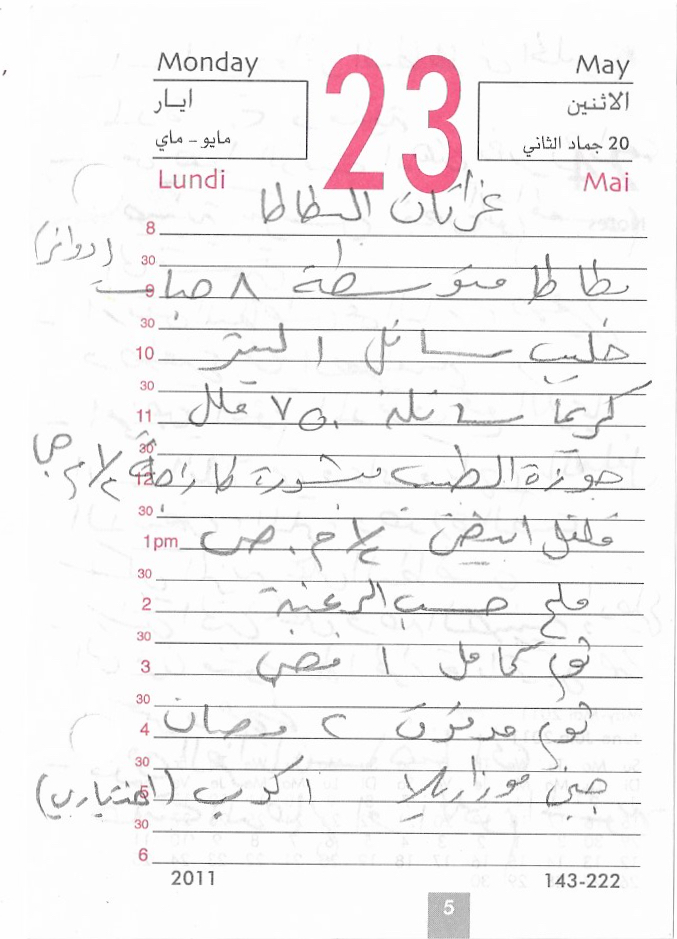 Monday 23 May
ايار الاثنين
مايو - ماي 20 جماد الثاني
Lundi Mai
غراتان البطاطا
8
30 (دوائر)
9 بطاطا متوسطة ٨ حبات
30
10 حليب سائل ١ ليتر
30
11 كريما سائلة ٧٥٠ ملل
30
12 جوزة الطيب مبشورة طازجة ١/٢ م جا
30
1pm فلفل ابيض ١/٢ م. ص
30
2 ملح حسب الرغبة
30
3 ثوم كامل ١ فص
30
4 ثوم مدقوق ٢ فصان
30
5 جبن موزاريلا ١ كوب (اختياري)
30
6
2011 143-222
5